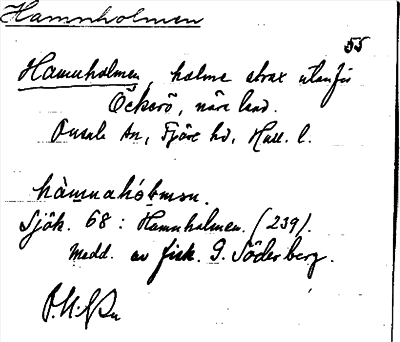 Hamnholmen
55
Hamnholmen, holme strax utanför
Öckerö, nära land.
Onsala sn, Fjäre hd, Hall. l.
hàmnahólmən.
Sjök. 68 : Hamnholmen. (239).
Medd. av fisk. G. Söderberg.